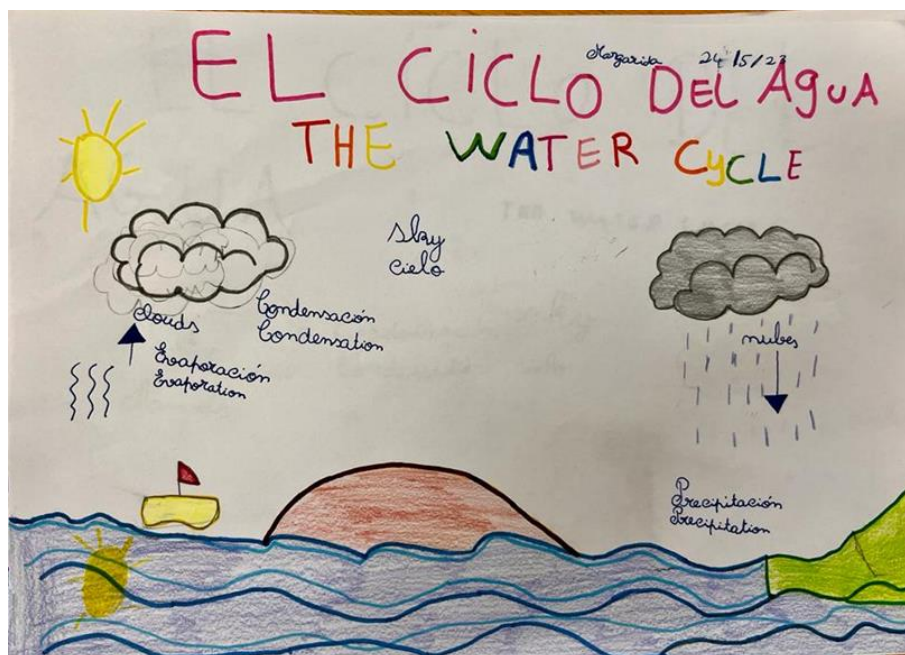 EL CiCLO DEL AguA
Margarida 24/5/23
THE WATER CyCLE
sky
cielo
clouds
Condensación
Condensation
Evaporación
Evaporation
nubes
Precipitación
Precipitation